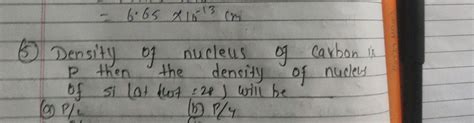 = 6.65 x10-13 cm
(5) Density of nucleus of carbon is
P then the dencity of nucleus
of si (at = 28) will be
(a) P/2 (b) P/4